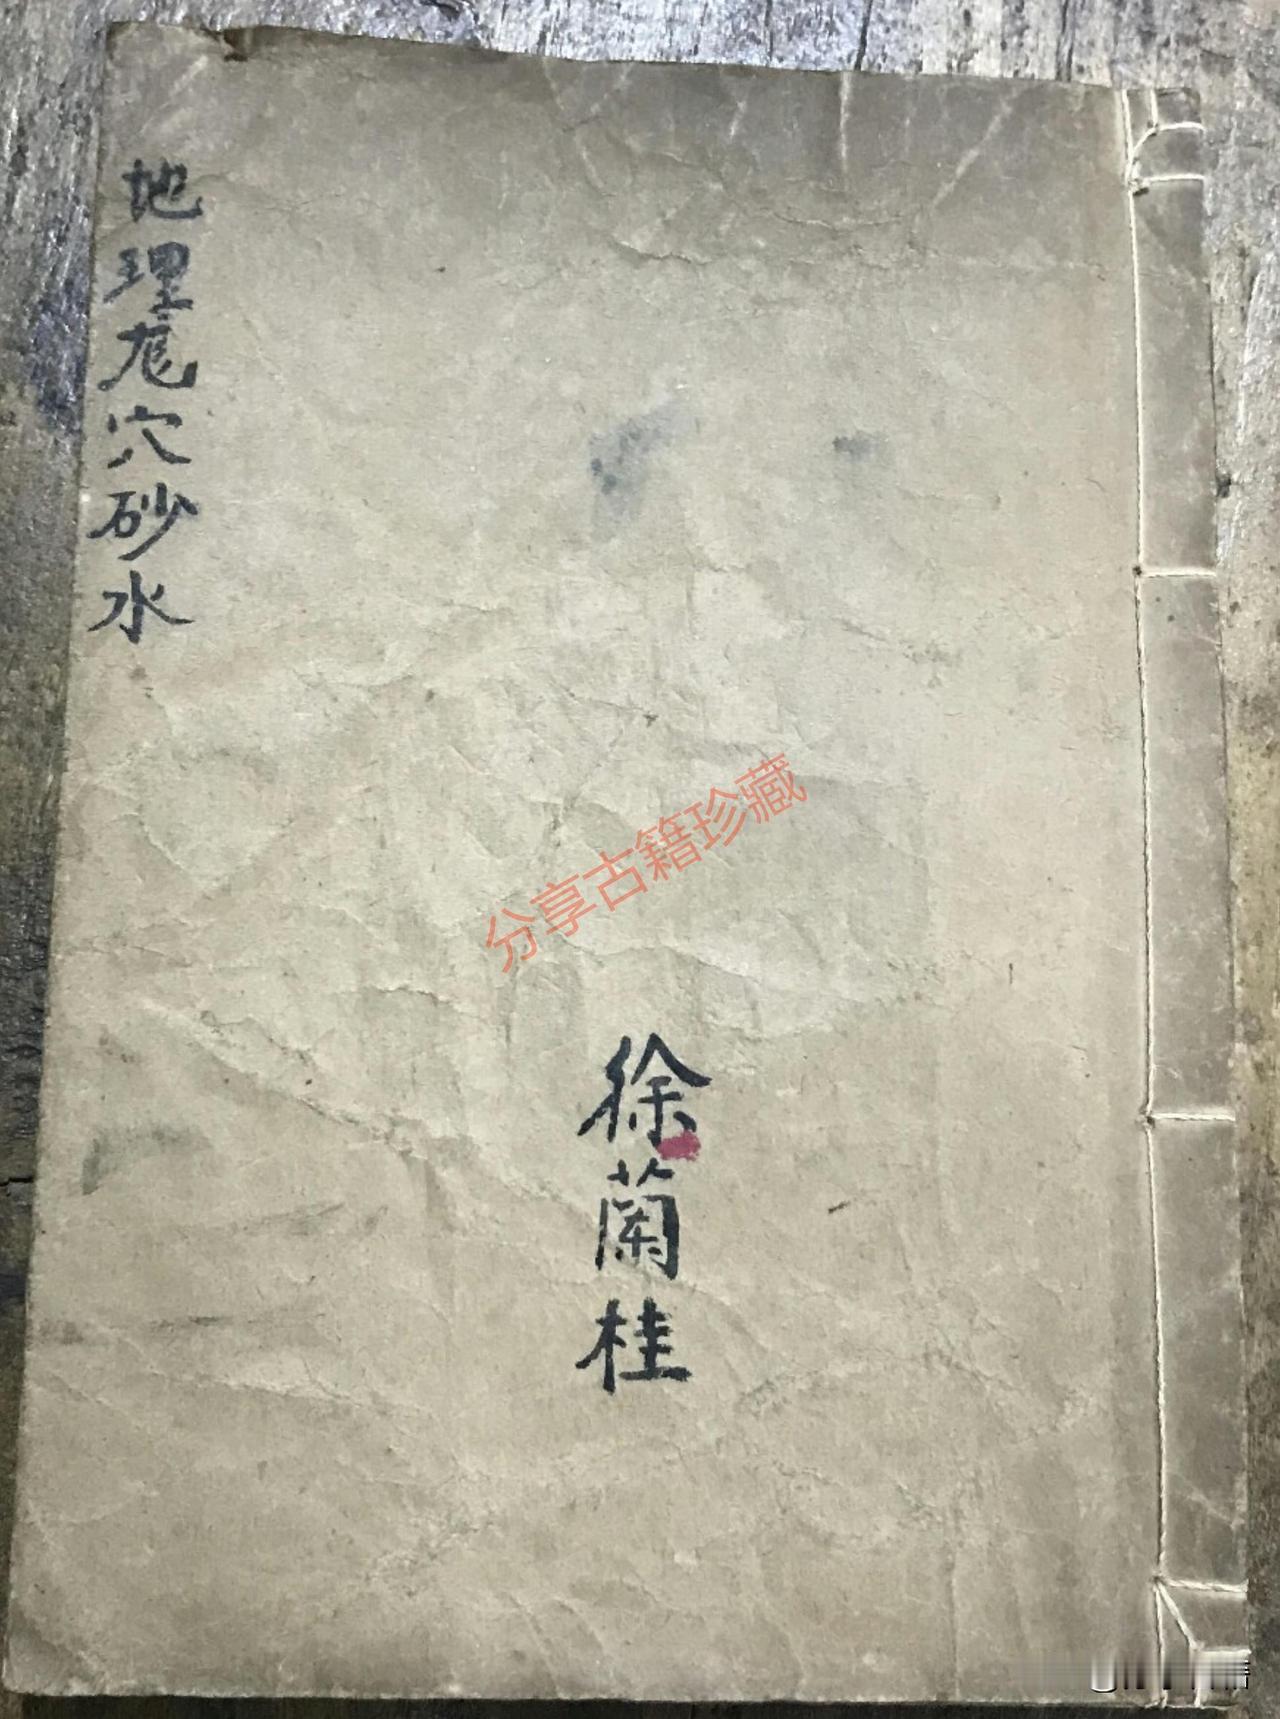 地理尨穴砂水
分享古籍珍藏
徐蘭桂